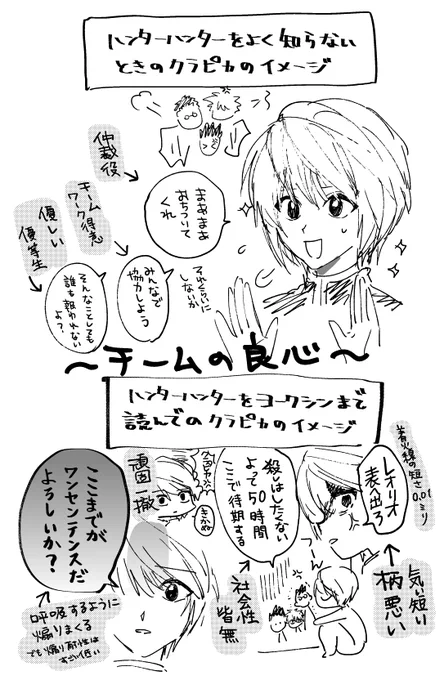 ハンターハンターをよく知らない
ときのクラピカのイメージ
仲裁役
チーム
ワーク得意
優しい
優等生
まあまあ
おちついて
くれ
それぐらいに
しないか
みんなで
協力しよう
そんなことしても
誰も報われない
よ?
〜チームの良心〜
ハンターハンターをヨークシンまで
読んでのクラピカのイメージ
着火線の短さ0.01
ミリ
レオリオ
表へ出ろ
気い短い
柄悪い
殺しはしたくない
よって50時間
ここで待期する
社会性
皆無
頑固一徹
きかぬ
ここまでが
ワンセンテンスだ
よろしいか?
呼吸するように
煽りまくる
でも煽り耐性は
すごい低い